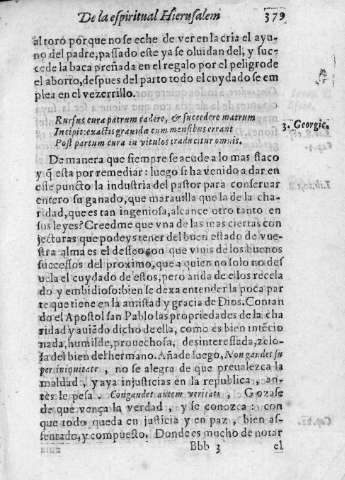 De la espiritual Hierusalem 379
al toro porque no se eche de ver en la cria el ayu-
no del padre, passado este ya se oluidan del; y suc-
cede la baca preñada en el regalo por el peligro de
el aborto, despues del parto todo el cuydado se em
plea en el vezerrillo.
Rursus cura patrum cadere, & succedere matrum
Incipit: exactis gravida cum mensibus errant
Post partum cura in vitulos traducitur omnis.
3. Georgic.
De manera que siempre se acude a lo mas flaco
y q̃ esta por remediar: luego si ha venido a dar en
este puncto la industria del pastor para conseruar
entero su ganado, que marauilla que la de la cha-
ridad, que es tan ingeniosa, alcance otro tanto en
sus leyes? Creedme que vna de las mas ciertas con
jecturas que podeys tener del buen estado de vue-
stra alma es el desseo con que viuis de los buenos
successos del proximo, que a quien no solo no des
uela el cuydado de estos, pero anda de ellos recela
do y embidioso: bien se dexa entender la poca par
te que tiene en la amistad y gracia de Dios. Contan
do el Apostol san Pablo las propriedades de la cha
ridad y auiẽdo dicho de ella, como es bien intẽcio
nada, humilde, prouechosa, desinteressada, zelo-
sa del bien del hermano. Añade luego, Non gaudet su
per iniquitate, no se alegra de que preualezca la
maldad, y aya injusticias en la republica, an-
tes le pesa. Congaudet autem veritati, Gozase
de que vença la verdad, y se conozca: con
que todo queda en justicia y en paz, bien as-
sentado, y compuesto. Donde es mucho de notar
Bbb 3 el